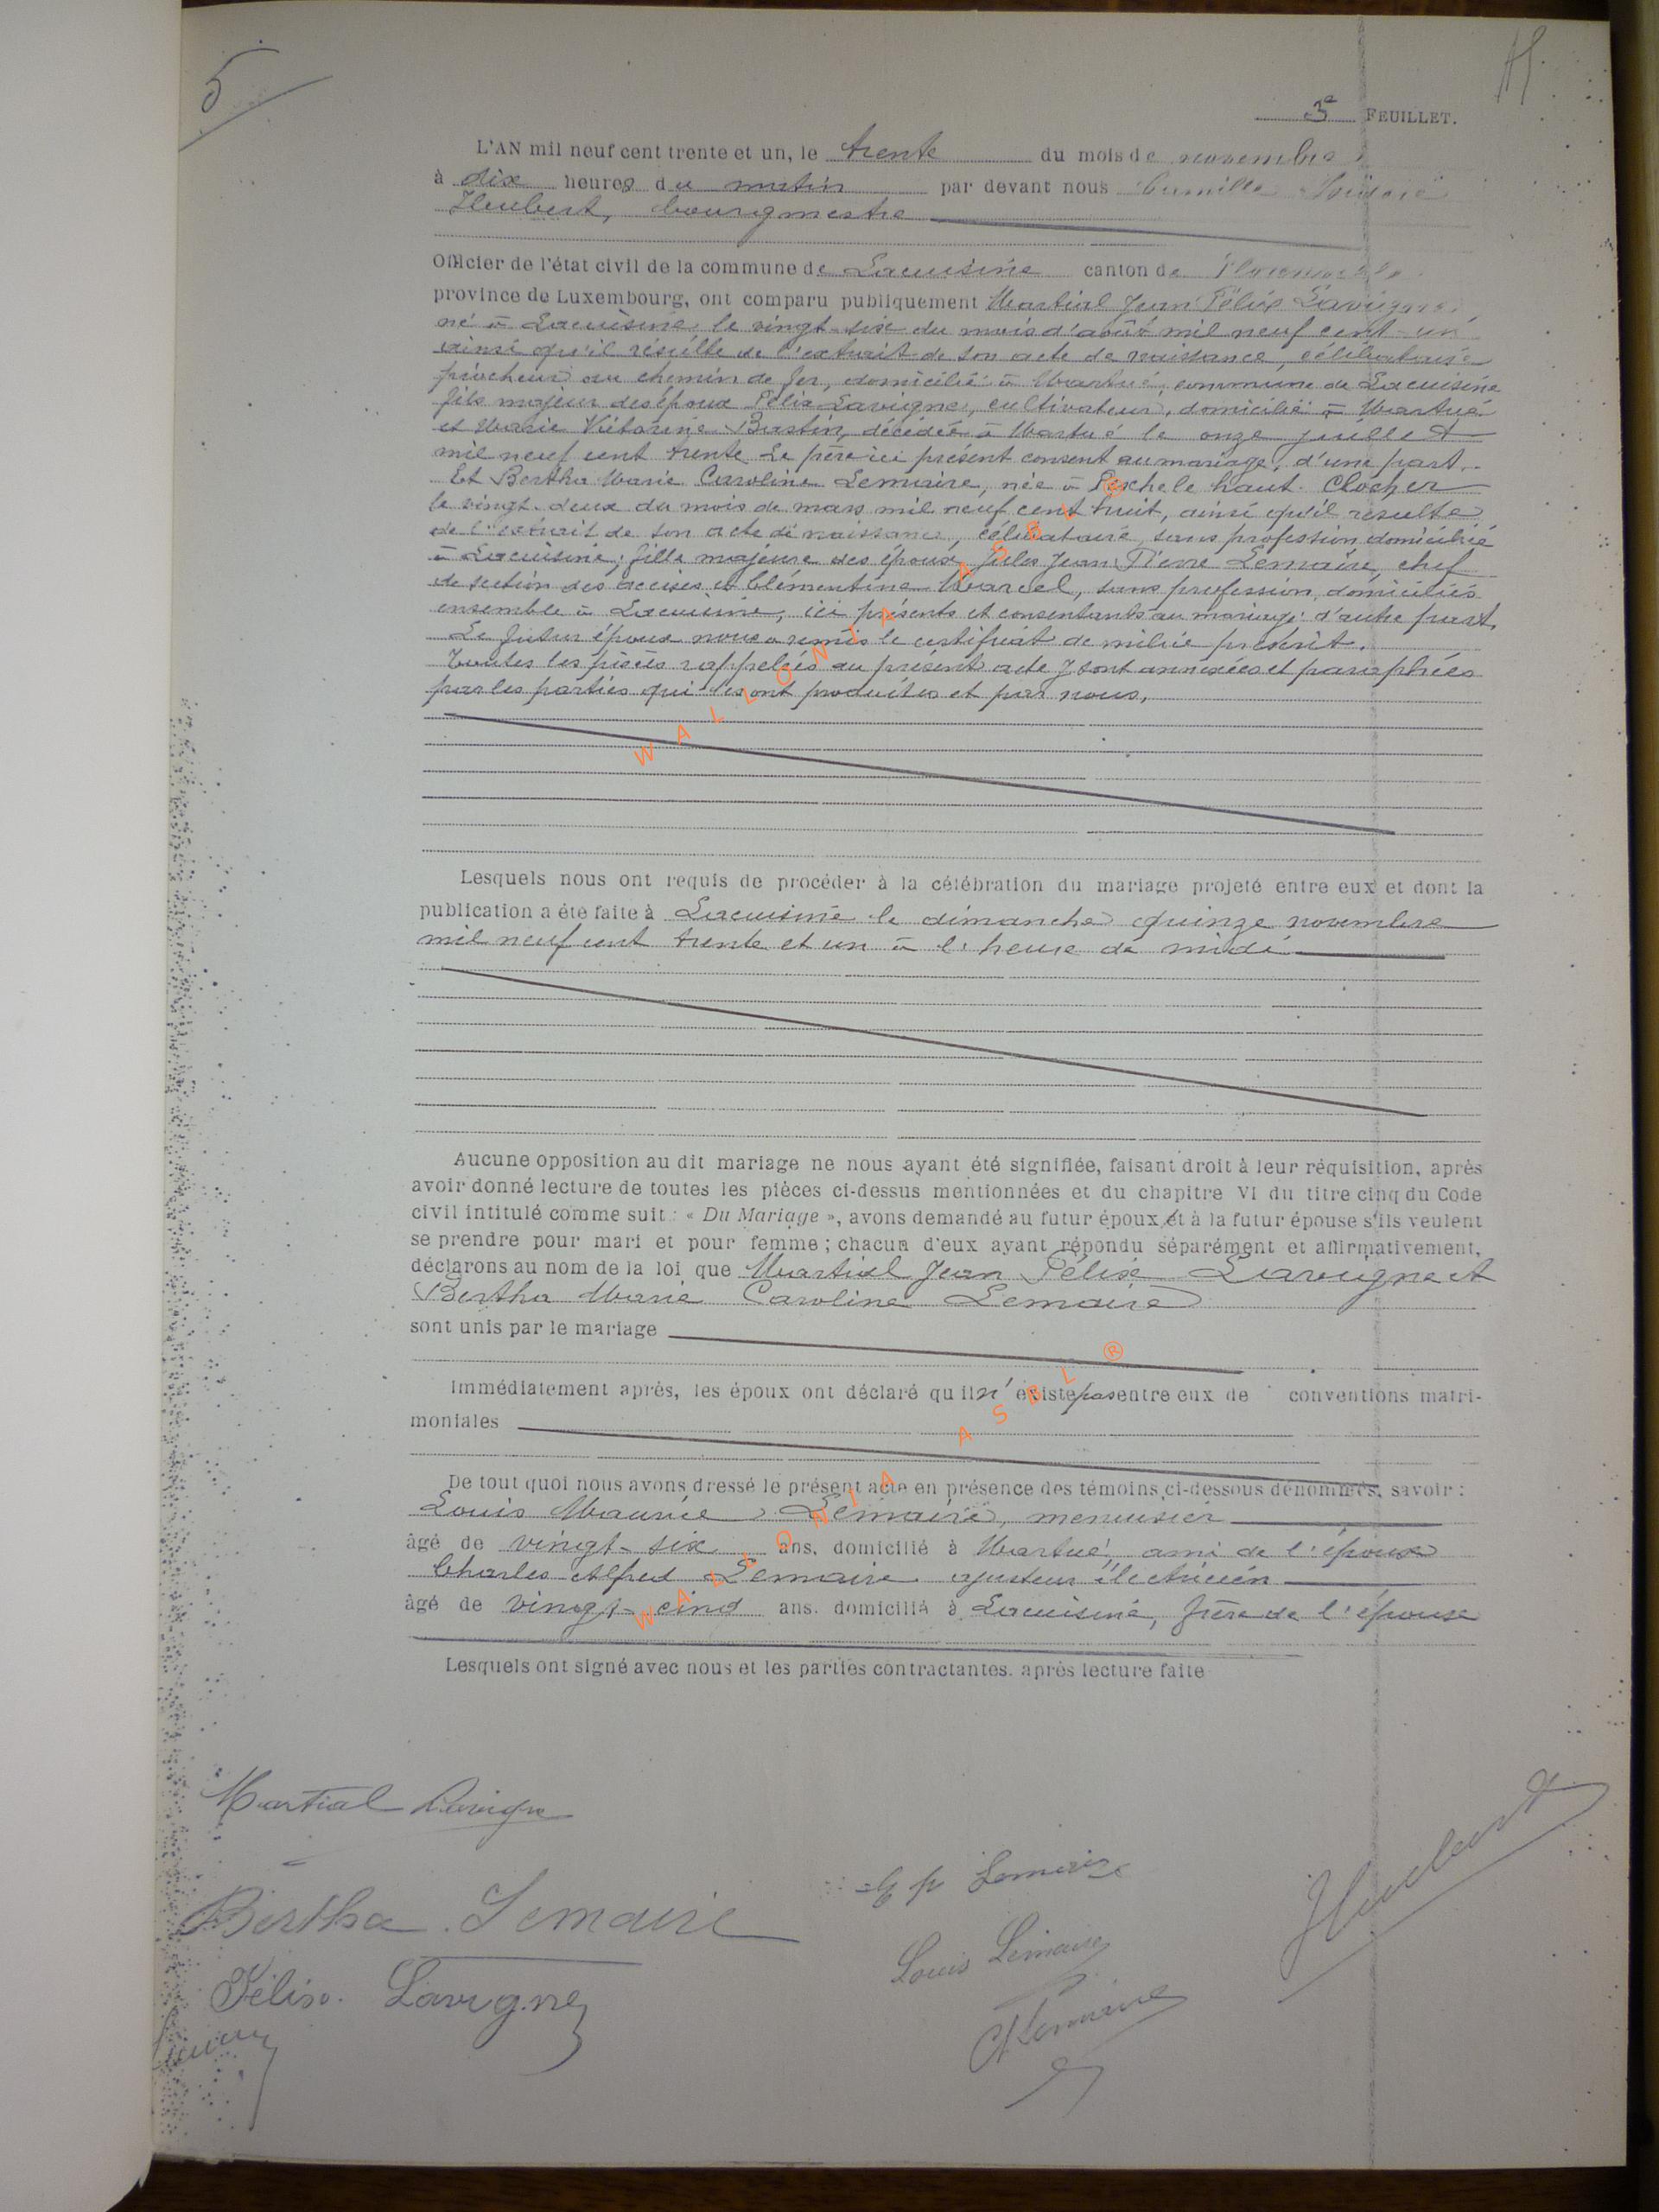 5
3e FEUILLET.
L'AN mil neuf cent trente et un, le trente du mois de novembre
à dix heures du matin par devant nous Camille
Hubert, bourgmestre
Officier de l'état civil de la commune de Lacuisine canton de Florenville
province de Luxembourg, ont comparu publiquement Martial Jean Félix Lavigne,
né à Lacuisine le vingt-six du mois d'août mil neuf cent un
ainsi qu'il résulte de l'extrait de son acte de naissance, célibataire
piocheur au chemin de fer, domicilié à Martué, commune de Lacuisine
fils majeur des époux Félix Lavigne, cultivateur, domicilié à Martué
et Marie Victorine Bastin, décédée à Martué le onze juillet
mil neuf cent trente Le père ici présent consent au mariage, d'une part.
Et Bertha Marie Caroline Lemaire, née à haut. Clocher
le vingt-deux du mois de mars mil neuf cent huit, ainsi qu'il résulte
de l'extrait de son acte de naissance, célibataire, sans profession domiciliée
à Lacuisine, fille majeure des époux Jules Jean Pierre Lemaire, chef
de section des accises et Clémentine Marcel, sans profession, domiciliés
ensemble à Lacuisine, ici présents et consentants au mariage, d'autre part.
Le futur époux nous a remis le certificat de milice prescrit.
Toutes les pièces rappelées au présent acte y sont annexées et paraphées
par les parties qui les ont produites et par nous.
Lesquels nous ont requis de procéder à la célébration du mariage projeté entre eux et dont la
publication a été faite à Lacuisine le dimanche quinze novembre
mil neuf cent trente et un à l'heure de midi
Aucune opposition au dit mariage ne nous ayant été signifiée, faisant droit à leur réquisition, après
avoir donné lecture de toutes les pièces ci-dessus mentionnées et du chapitre VI du titre cinq du Code
civil intitulé comme suit : « Du Mariage », avons demandé au futur époux et à la futur épouse s'ils veulent
se prendre pour mari et pour femme ; chacun d'eux ayant répondu séparément et affirmativement,
déclarons au nom de la loi que Martial Jean Félix Lavigne et
Bertha Marie Caroline Lemaire
sont unis par le mariage
Immédiatement après, les époux ont déclaré qu'il n'existe pas entre eux de conventions matri-
moniales
De tout quoi nous avons dressé le présent acte en présence des témoins ci-dessous dénommés, savoir :
Louis Maurice Lemaire, menuisier
âgé de vingt-six ans, domicilié à Martué, ami de l'époux
Charles Alfred Lemaire ajusteur électricien
âgé de vingt-cinq ans, domicilié à Lacuisine, frère de l'épouse
Lesquels ont signé avec nous et les parties contractantes, après lecture faite
Martial Lavigne
Bertha Lemaire
Félix Lavigne
Lemaire
Louis Lemaire
Lemaire
Hubert
WALLONIA ASBL ®
WALLONIA ASBL ®